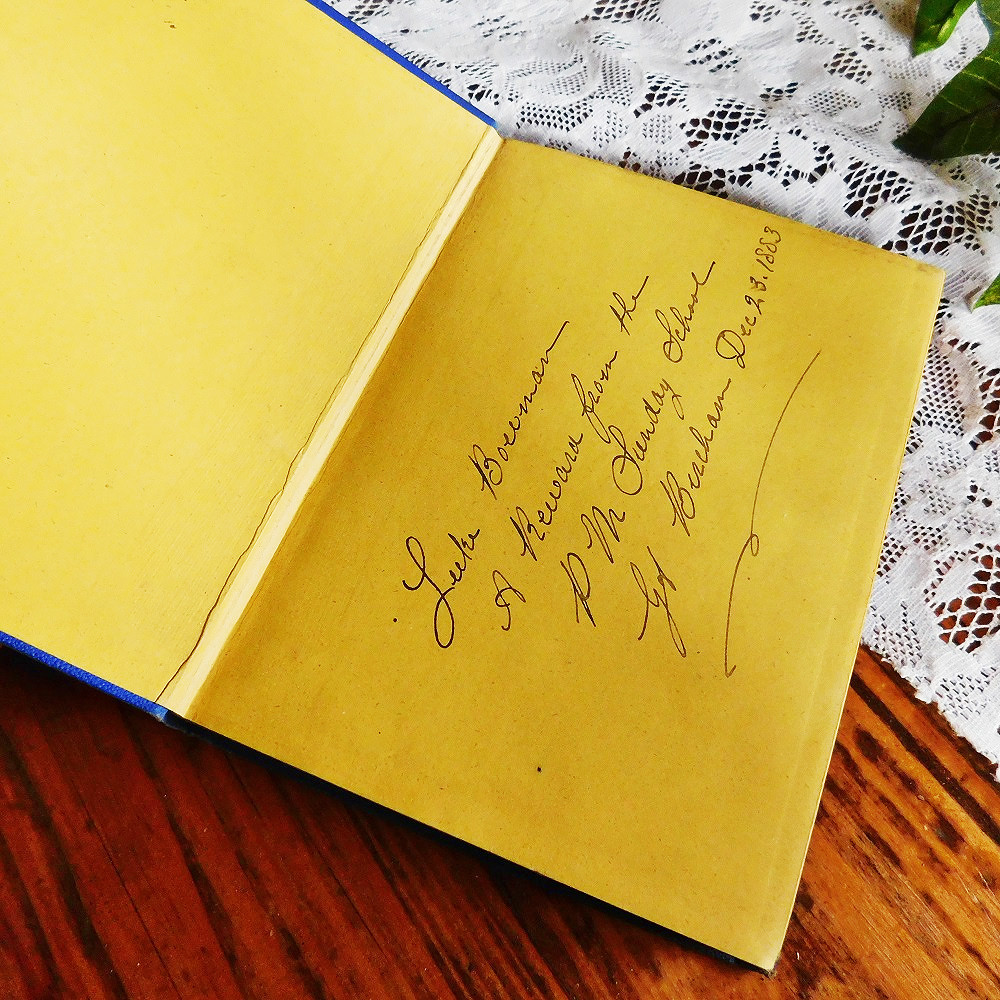 Luke Bowman
A Reward from the
P M Sunday School
Gt Bircham Dec 23. 1883